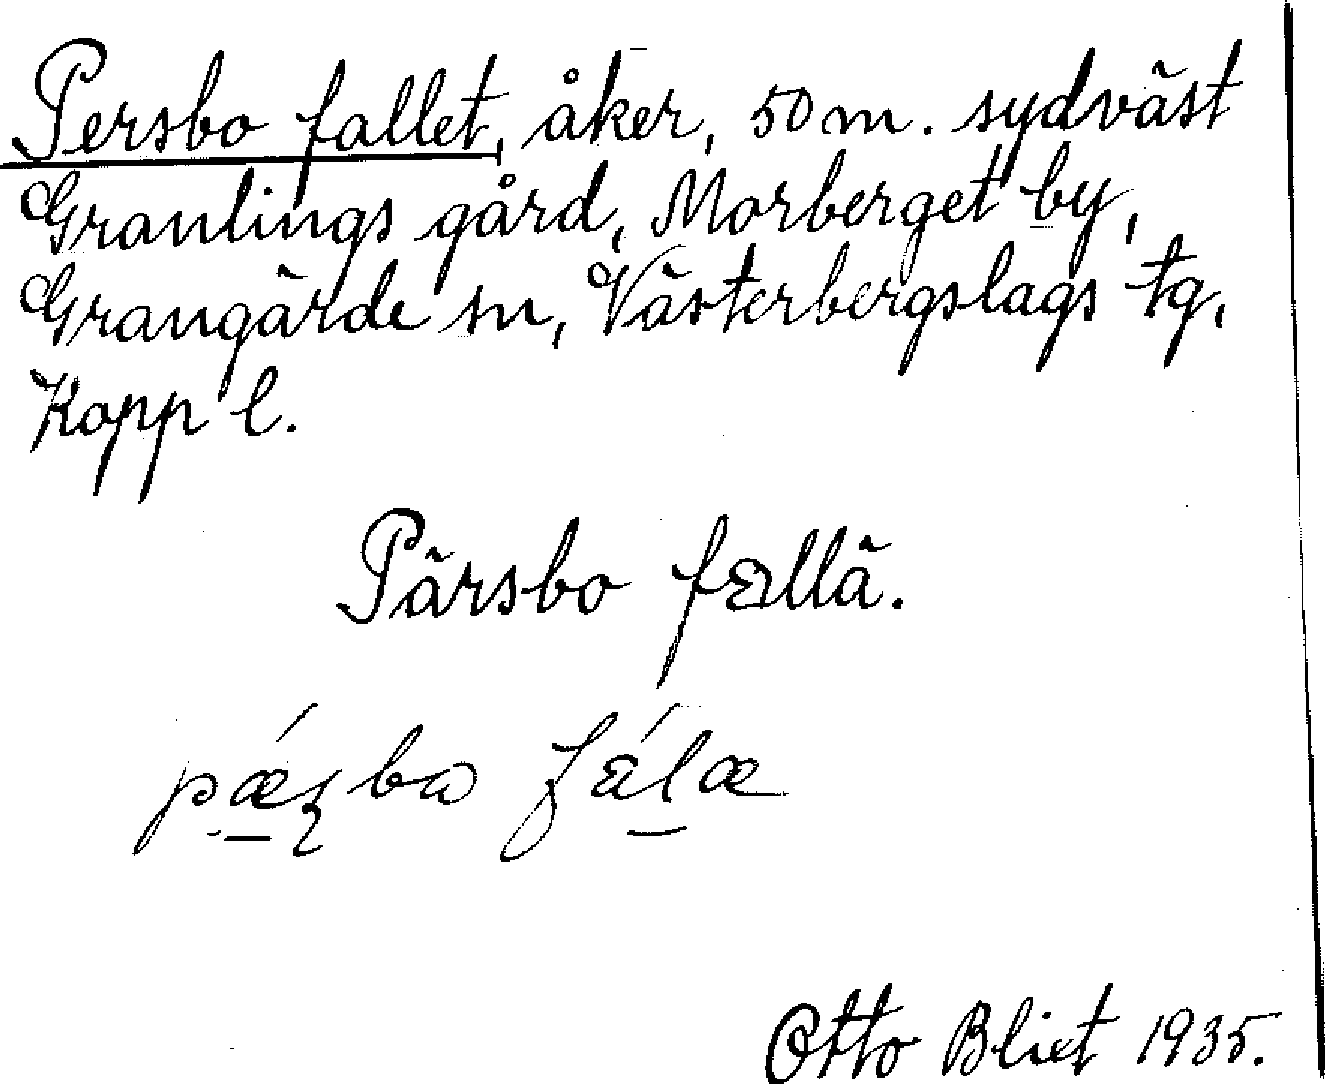 Persbo fallet, åker, 50 m. sydväst
Granlings gård, Morberget by,
Grangärde sn, Västerbergslags tg,
Kopp l.
Pärsbo fallä.
Otto Bliet 1935.